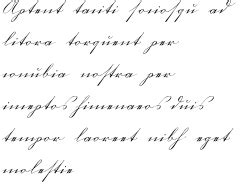 Aptent taciti sociosqu ad
litora torquent per
conubia nostra per
inceptos himenaeos duis
tempor laoreet nibh eget
molestie